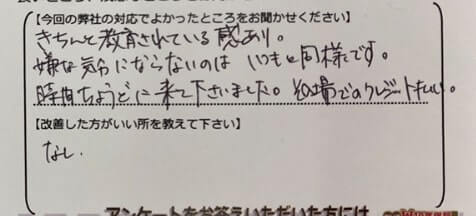 【今回の弊社の対応でよかったところをお聞かせください】
きちんと教育されている感あり。
嫌な気分にならないのは いつもと同様です。
時間ちょうどに来て下さいました。その場でのクレジット払い。
【改善した方がいい所を教えて下さい】
なし
アンケートをお答えいただいた方には